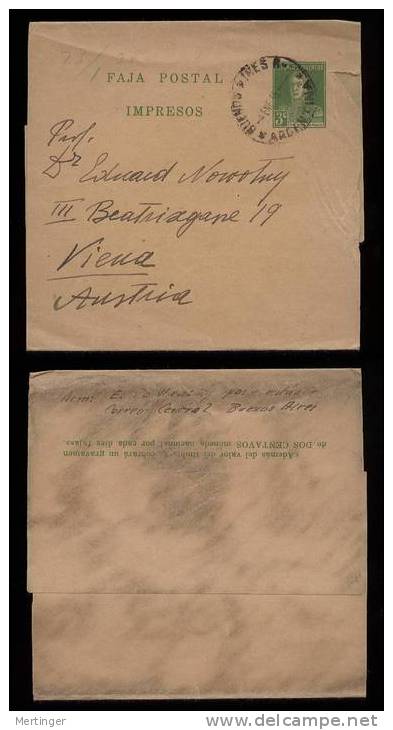 FAJA POSTAL
IMPRESOS
3c
BUENOS AIRES
ARGENTINA
Prof.
Dr Eduard Nowotny
III Beatrixgasse 19
Viena
Austria
Correo Central Buenos Aires
de DOS CENTAVOS moneda nacional por cada diez fajas».
«Además del valor del timbre, se cobrará un gravamen
Mertinger
www.delcampe.net